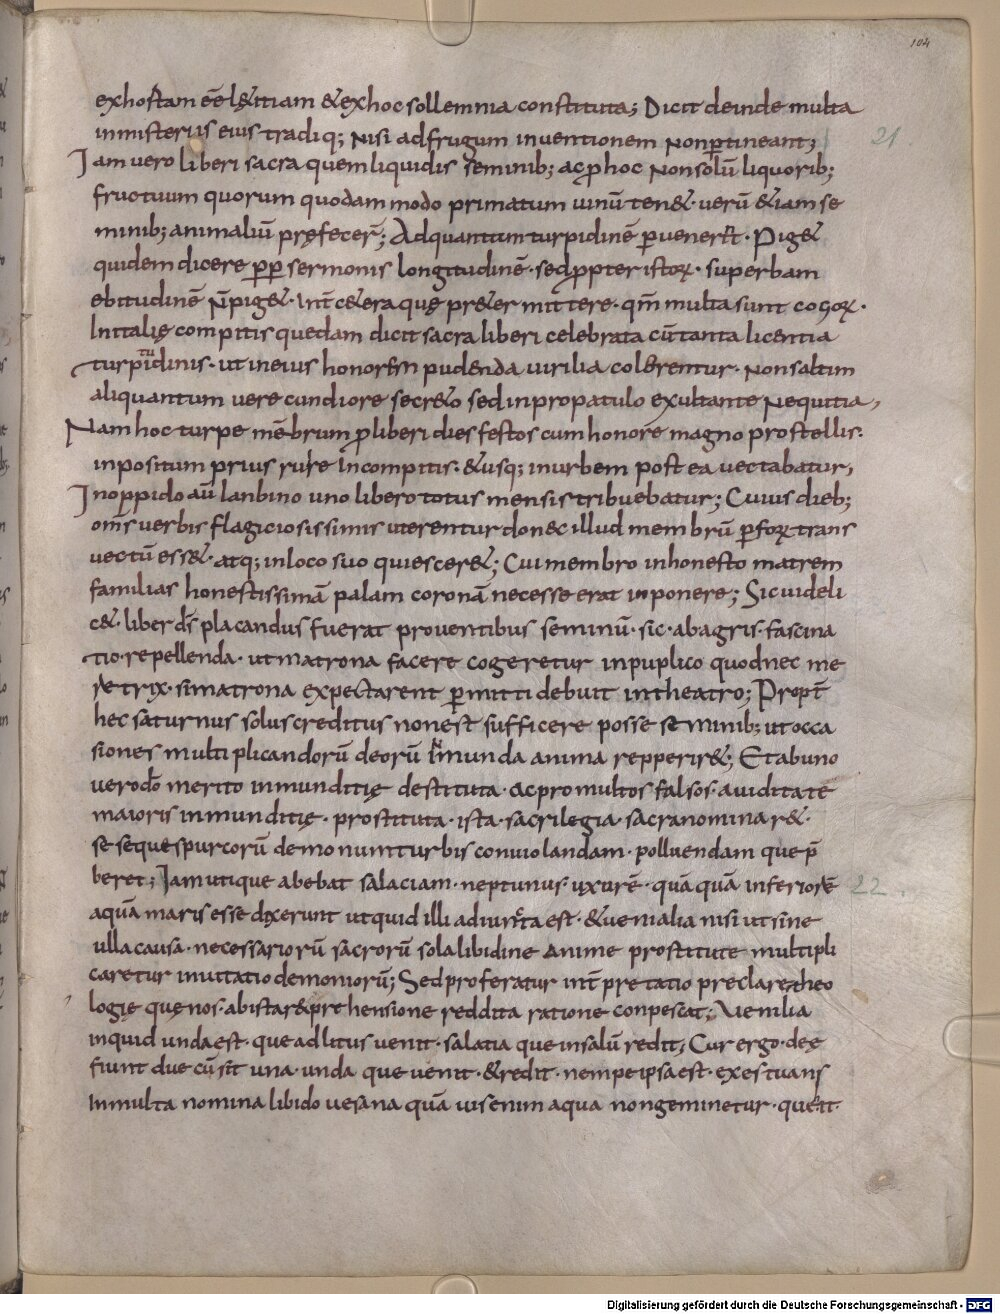 104
exhostam eē lętitiam & exhoc sollemnia constituta; Dicit deinde multa
inmisteriis eius tradiq; Nisi adfrugum inventionem Nonꝑtineant; 21
Iam vero liberi sacra quem liquidis seminib; acꝓhoc Nonsolū liquorib;
fructuum quorum quodammodo primatum uinū ten&· verū &iam se
minib; animaliū pręfecerr̄; Adquantum turpidinē ꝑvenerꝶ· Pig&
quidem dicere ꝓꝑ sermonis longitudinē· sedꝓpter istoꝝ· superbam
ebitudinē N̄pig&· int̄ c&era quę pr&er mittere· qm̄ multa sunt cogoꝝ·
Initalię compitis quedam dicit sacra liberi celebrata cū tanta licentia
turpitudinis· ut ineius honorem pudenda virilia colerentur· Nonsaltim
aliquantum verecundiore secr&o sed inpropatulo exultante Nequitia,
Nam hoc turpe mēbrum ꝑliberi dies festos cum honore magno prostellis·
inpositum prius rure Incompitis· &usq; inurbem postea vectabatur,
Inoppido aū lanbino uno libero totus mensis tribuebatur; Cuius dieb;
om̄s verbis flagiciosissimis uterentur donec illud membrū ꝑ foꝝ trans
vectū ess&· atq; inloco suo quiescer&; Cui membro inhonesto matrem
familias honestissimā palam coronā necesse erat inponere; Sic uideli
c&· liber ds̄ placandus fuerat proventibus seminū· sic· abagris· fascina
tio· repellenda· ut matrona facere cogeretur inpuplico quod nec me
retrix· simatrona expectarent ꝑmitti debuit intheatro; Propt̄
hec saturnus solus creditus nonest sufficere posse seminib; ut occa
siones multiplicandorū deorū inmunda anima repperir&; Et abuno
verodō merito inmunditię destituta· acpromultos falsos· aviditate
maioris inmunditię· prostituta· ista· sacrilegia· sacranominar&·
se seque spurcorū demonum turbis conviolandam· polluendam que p̄
beret; Iam utique abebat salaciam· neptunus· uxurē· quā quā inferiorē 22.
aquā maris esse dixerunt utquid illi adiuncta est· & uenialia nisi ut sine
ulla causa· necessariorū sacrorū sola libidine Anime prostitute multipli
caretur inuitatio demoniorū; Sed proferatur int̄pretatio preclare theo
logie que nos· abista r&prehensione reddita ratione conpescat; Venilia
inquid unda est· que adlitus venit· salatia que insalū redit; Cur ergo· deę
fiunt due cū sit una· unda que uenit· & redit· nempe ipsa est· exestuans
Inmulta nomina libido uesana quā uis enim aqua non geminetur· que it·
Digitalisierung gefördert durch die Deutsche Forschungsgemeinschaft - DFG